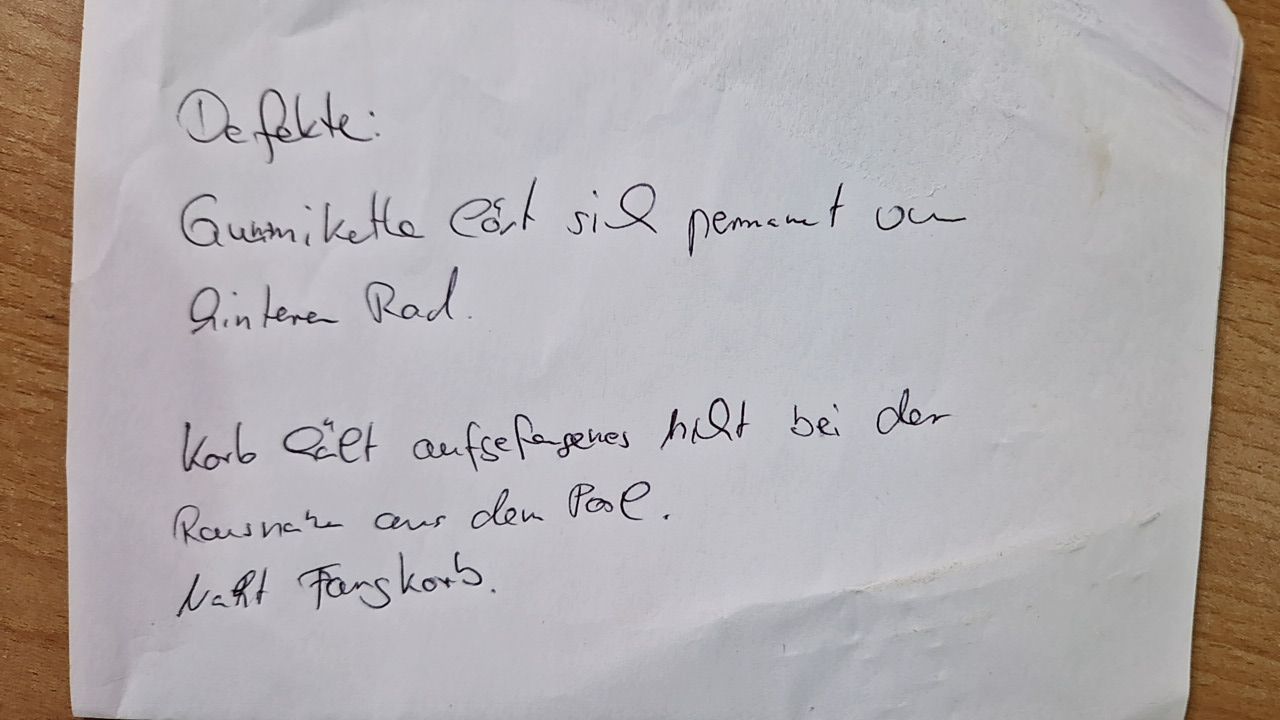 Defekte:
Gummikette löst sich permanent vom
hinteren Rad.
Korb hält aufgefangenes nicht bei der
Rausnahme aus dem Pool.
Naht Fangkorb.